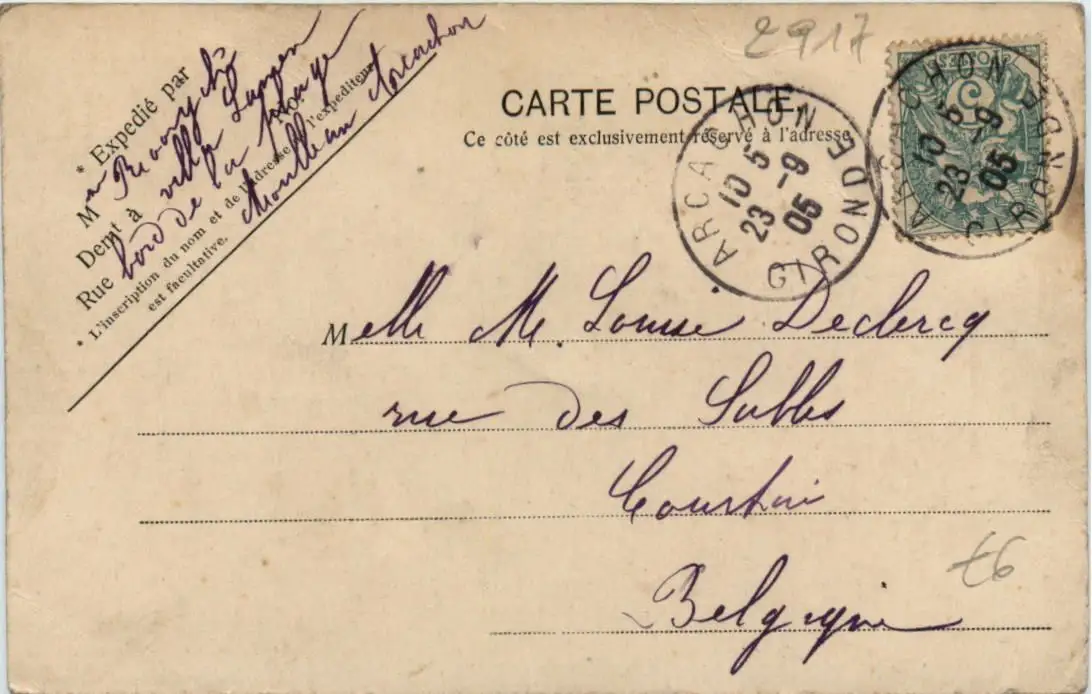 2917
* Expedié par
M
Demt à villa
Rue bord de la plage No
* L'inscription du nom et de l'adresse de l'expediteur
est facultative.
Moulleau Arcachon
CARTE POSTALE
Ce côté est exclusivement réservé à l'adresse
ARCACHON
10 5
23 -9
05
GIRONDE
ARCACHON
10 5
23 -9
05
GIRONDE
POSTES
5
Melle M. Louise Declercq
rue des Sables
Courtrai
Belgique
€6